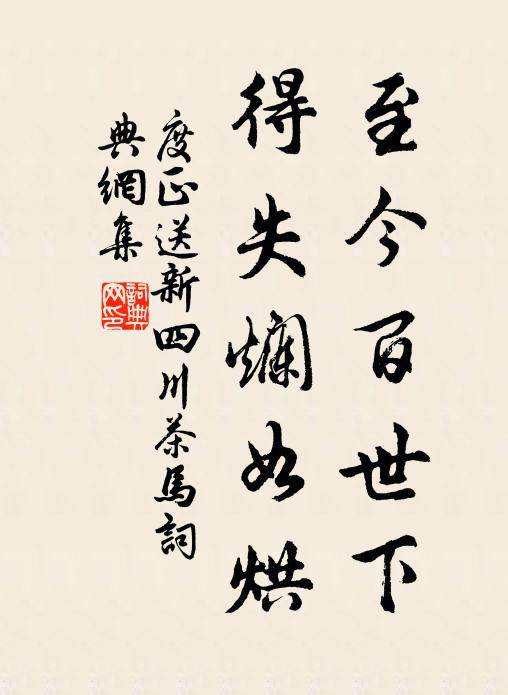 至今百世下
得失爛如烘
度正送新四川茶馬詞
典網集
詞典网印